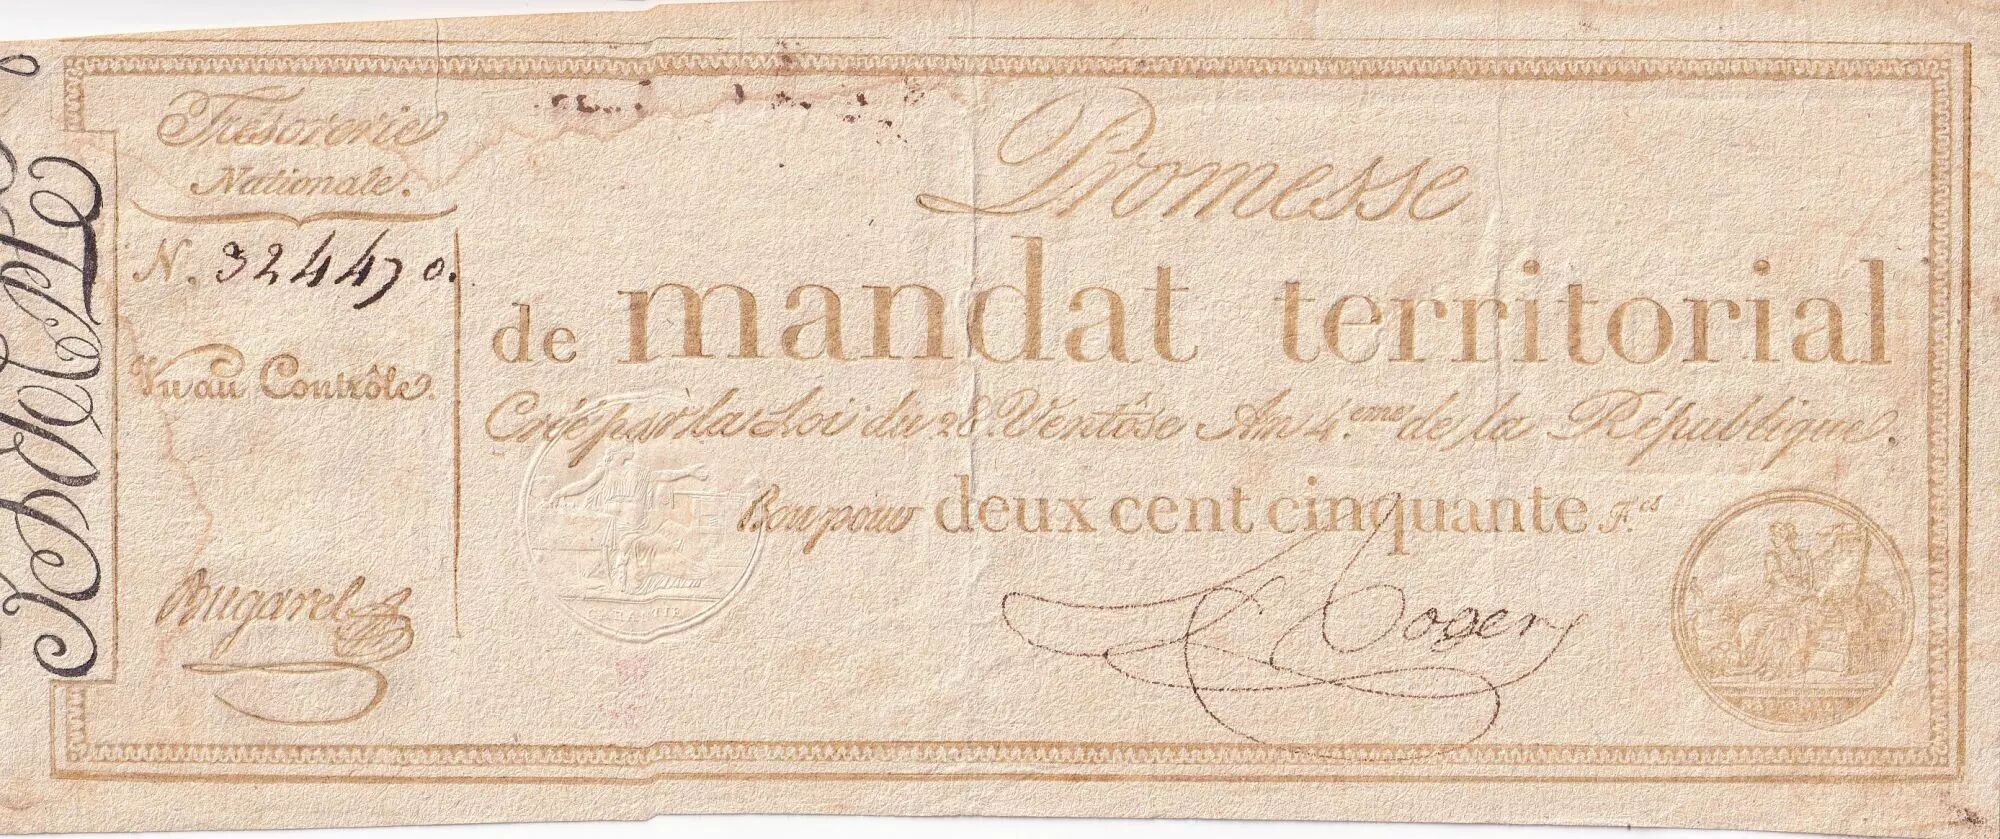 Trésorerie
Nationale.
N. 324470.
Vu au Contrôle.
Bugarel
Promesse
de mandat territorial
Créé par la Loi du 28. Ventôse An 4.eme de la République.
Bon pour deux cent cinquante F.cs